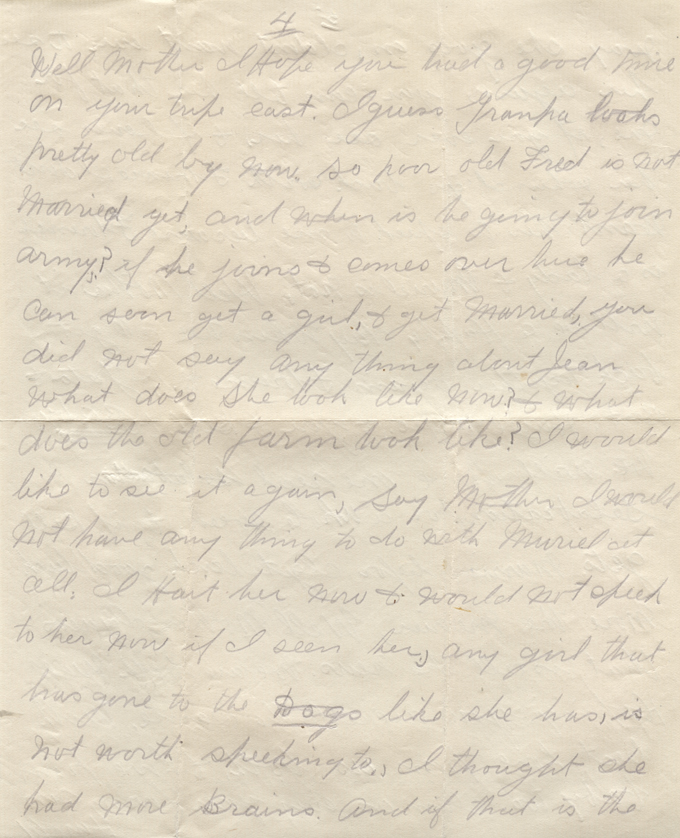 4
Well Mother I Hope you had a good time
on your tripe east. I guess Granpa looks
pretty old by now. so poor old Fred is not
Married yet, and when is he going to join
army? if he joins & comes over here he
can soon get a girl, & get Married, you
did not say any thing about Jean
what does she look like now? & what
does the old farm look like? I would
like to see it again, say Mother I would
not have any thing to do with Muriel at
all. I hait her now & would not speek
to her now if I seen her, any girl that
has gone to the Dogs like she has, is
not worth speeking to, I thought she
had more Brains. And if that is the